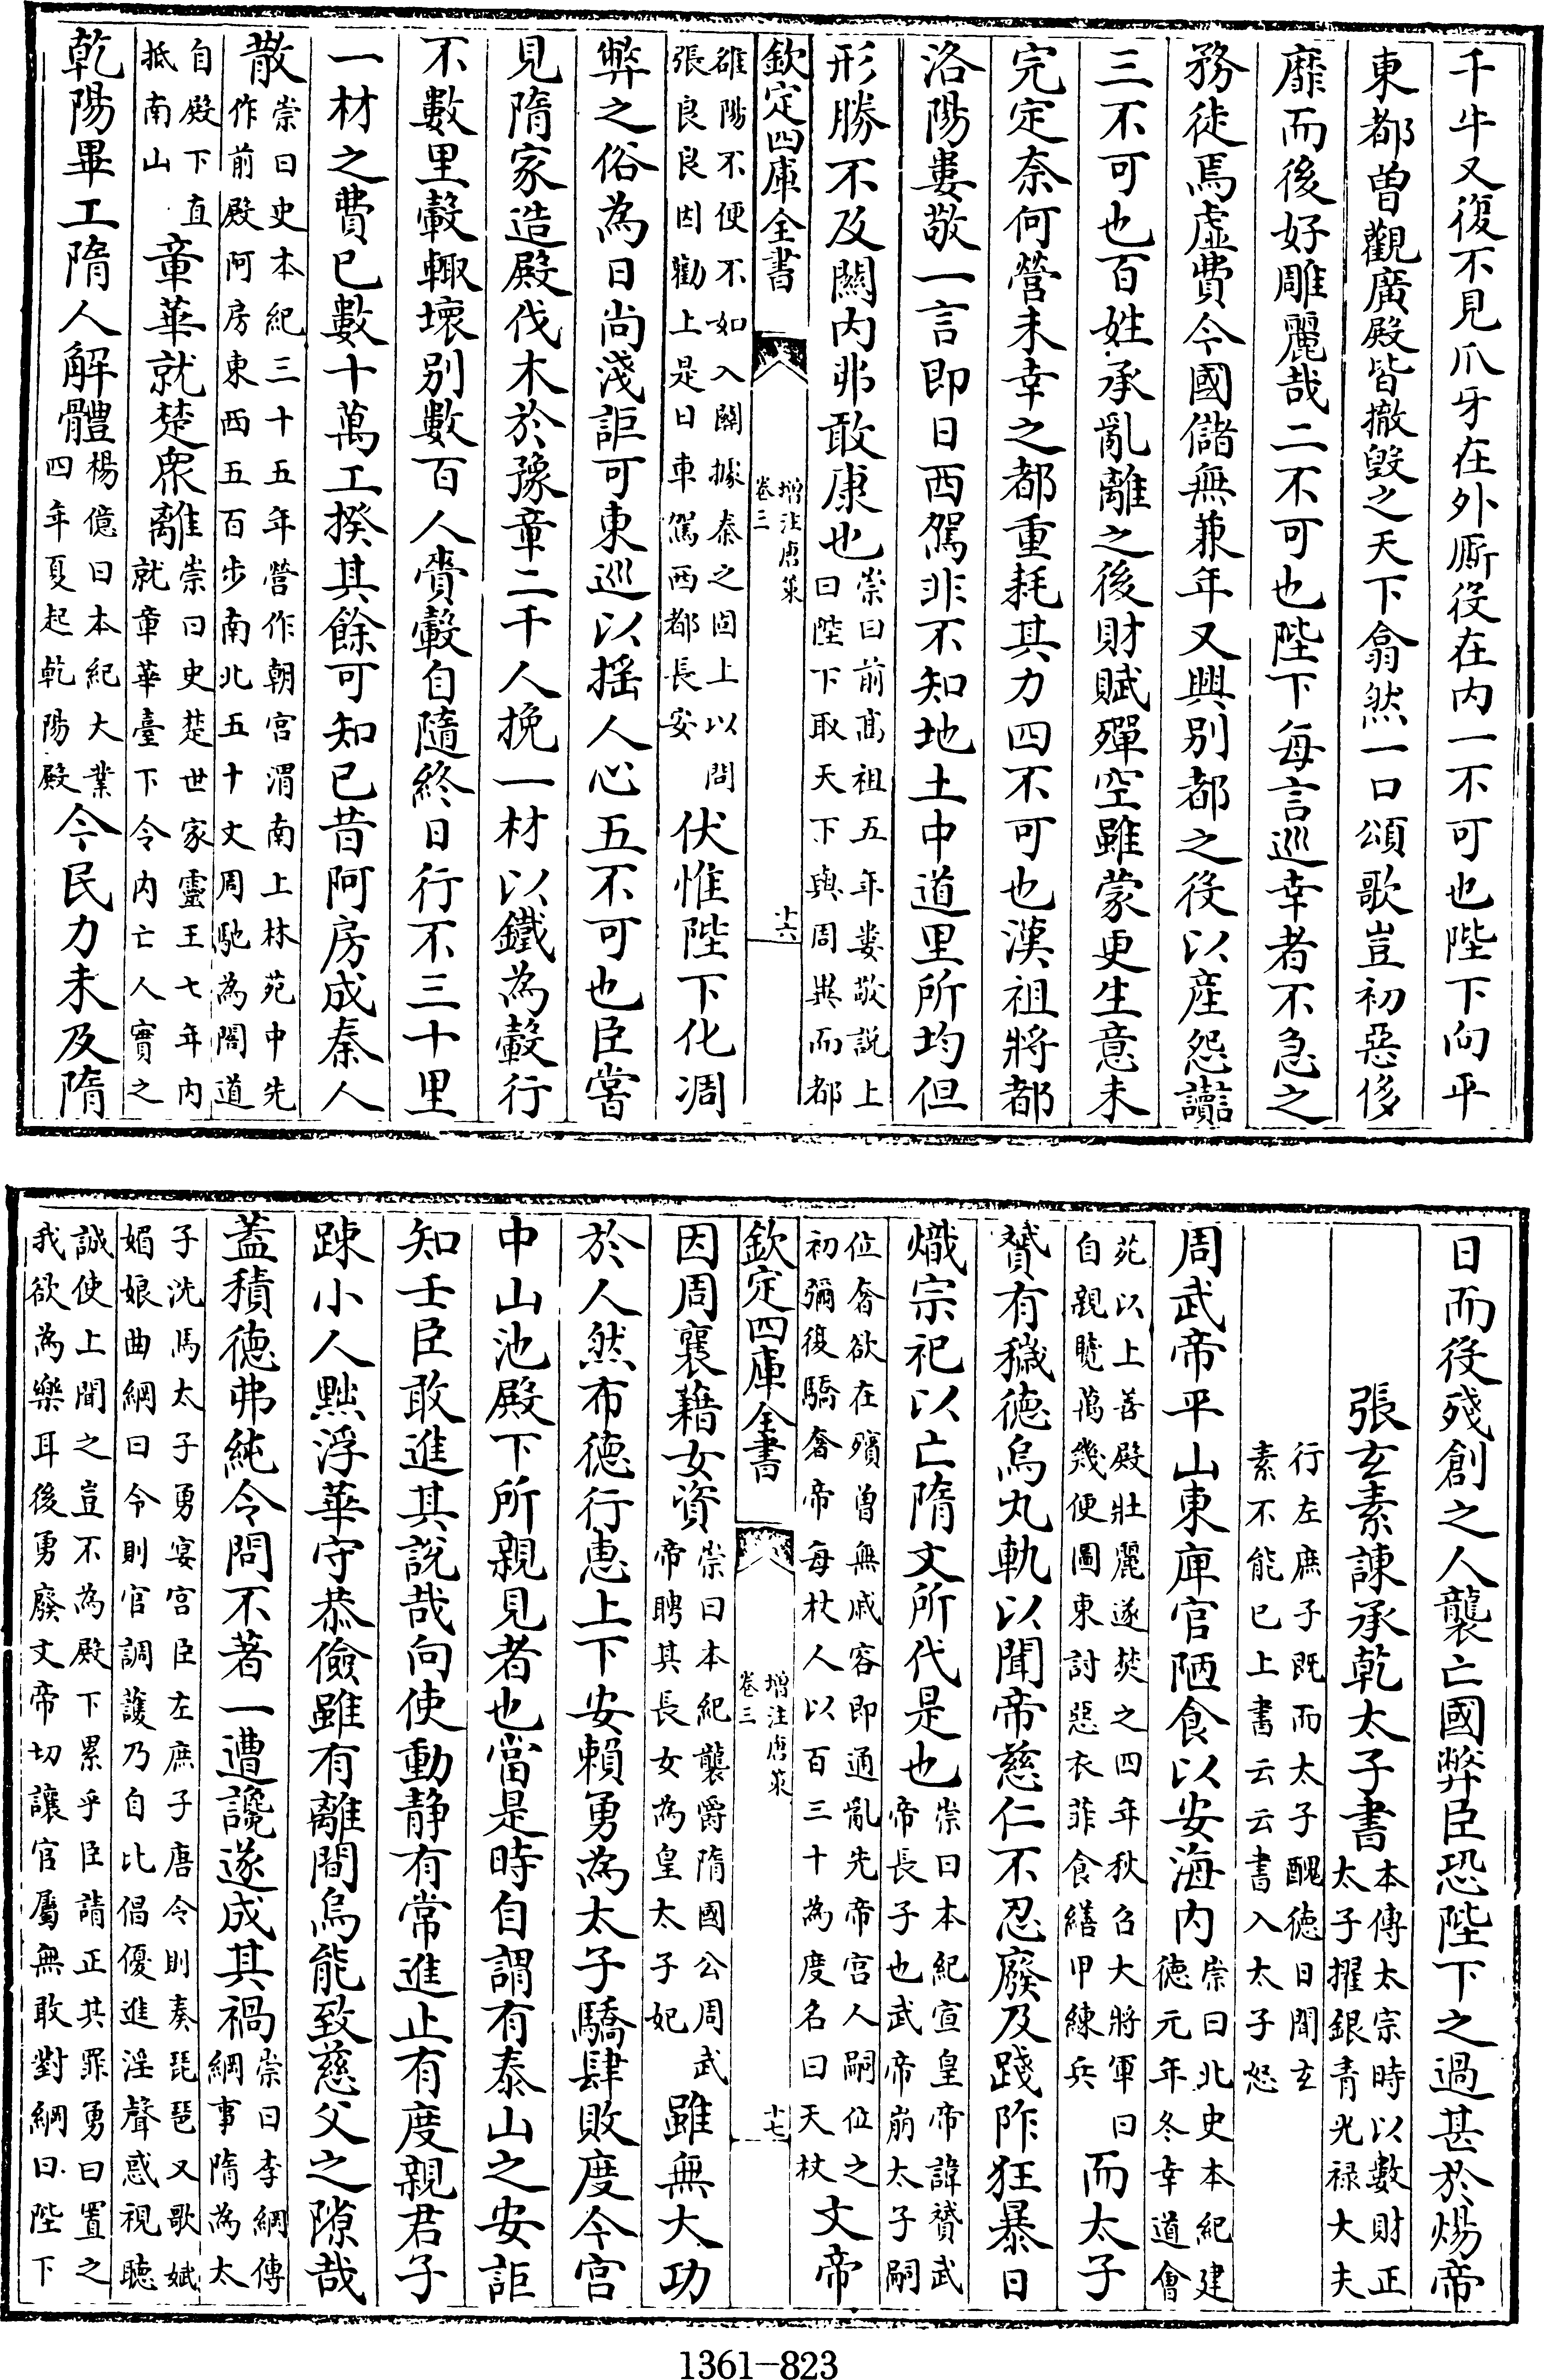 千牛又復不見爪牙在外厮役在内一不可也陛下向平
東都曽觀廣殿皆撤毁之天下翕然一口頌歌豈初惡侈
靡而後好雕麗哉二不可也陛下每言巡幸者不急之
務徒焉虚費今國儲無兼年又興别都之役以産怨讟
三不可也百姓承亂離之後財賦殫空雖蒙更生意未
完定奈何營未幸之都重耗其力四不可也漢祖將都
洛陽婁敬一言即日西駕非不知地土中道里所均但
形勝不及關内弗敢康也崇曰前髙祖五年婁敬説上
曰陛下取天下與周異而都
欽定四庫全書
增注唐策
卷三
十六
雒陽不便不如入關據秦之固上以問
張良良因勸上是日車駕西都長安伏惟陛下化凋
弊之俗為日尚淺詎可東巡以揺人心五不可也臣嘗
見隋家造殿伐木於豫章二千人挽一材以鐵為轂行
不數里轂輙壞别數百人賫轂自隨終日行不三十里
一材之費已數十萬工揆其餘可知已昔阿房成秦人
散崇曰史本紀三十五年營作朝宫渭南上林苑中先
作前殿阿房東西五百步南北五十丈周馳為閣道
自殿下直
抵南山章華就楚衆離崇曰史楚世家靈王七年内
就章華臺下令内亡人實之
乾陽畢工隋人解體楊億曰本紀大業
四年夏起乾陽殿今民力未及隋
日而役殘創之人襲亡國弊臣恐陛下之過甚於煬帝
張玄素諫承乾太子書本傳太宗時以數財正
太子擢銀青光禄大夫
行左庶子既而太子醜德日聞玄
素不能已上書云云書入太子怒
周武帝平山東庳宫陋食以安海内崇曰北史本紀建
德元年冬幸道會
苑以上善殿壯麗遂焚之四年秋召大將軍曰
自親覽萬幾便圖東討惡衣菲食繕甲練兵而太子
贇有穢德烏丸軌以聞帝慈仁不忍廢及踐阼狂暴日
熾宗祀以亡隋文所代是也崇曰本紀宣皇帝諱贇武
帝長子也武帝崩太子嗣
位奢欲在殯曽無戚容即通亂先帝宫人嗣位之
初彌復驕奢帝每杖人以百三十為度名曰天杖文帝
欽定四庫全書
增注唐策
卷三
十七
因周襄藉女資崇曰本紀襲爵隋國公周武
帝聘其長女為皇太子妃雖無大功
於人然布德行恵上下安賴勇為太子驕肆敗度今宫
中山池殿下所親見者也當是時自謂有泰山之安詎
知壬臣敢進其説哉向使動静有常進止有度親君子
踈小人黜浮華守恭儉雖有離間烏能致慈父之隙哉
蓋積德弗純令問不著一遭讒遂成其禍崇曰李綱傳
綱事隋為太
子洗馬太子勇宴宫臣左庶子唐令則奏琵琶又歌娬
媚娘曲綱曰令則官調護乃自比倡優進淫聲惑視聽
誠使上聞之豈不為殿下累乎臣請正其罪勇曰置之
我欲為樂耳後勇廢文帝切讓官屬無敢對綱曰陛下
1361-823